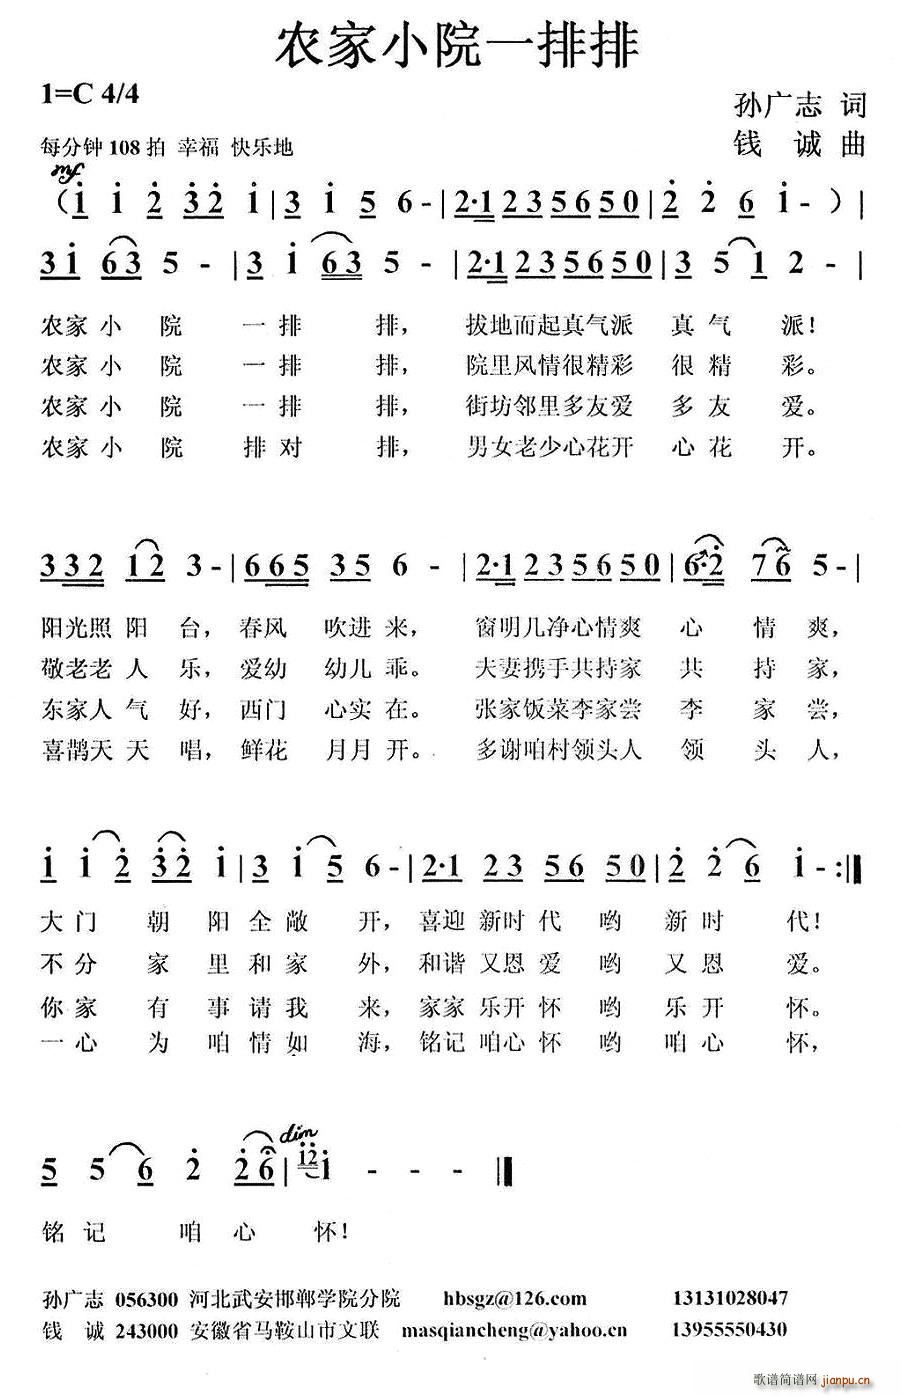 农家小院一排排
1=C 4/4
孙广志 词
每分钟 108 拍 幸福 快乐地
钱 诚 曲
mf
( i i 2 3 2 i | 3 i 5 6 - | 2·1 2 3 5 6 5 0 | 2 2 6 i - ) |
3 i 6 3 5 - | 3 i 6 3 5 - | 2·1 2 3 5 6 5 0 | 3 5 1 2 - |
农家 小 院 一 排 排, 拔地而起真气派 真 气 派!
农家 小 院 一 排 排, 院里风情很精彩 很 精 彩。
农家 小 院 一 排 排, 街坊邻里多友爱 多 友 爱。
农家 小 院 排 对 排, 男女老少心花开 心 花 开。
3 3 2 1 2 3 - | 6 6 5 3 5 6 - | 2·1 2 3 5 6 5 0 | 6·2 7 6 5 - |
阳光照 阳 台, 春风 吹进 来, 窗明几净心情爽 心 情 爽,
敬老老 人 乐, 爱幼 幼儿 乖。 夫妻携手共持家 共 持 家,
东家人 气 好, 西门 心实 在。 张家饭菜李家尝 李 家 尝,
喜鹊天 天 唱, 鲜花 月月 开。 多谢咱村领头人 领 头 人,
i i 2 3 2 i | 3 i 5 6 - | 2·1 2 3 5 6 5 0 | 2 2 6 i - :||
大 门 朝 阳 全 敞 开, 喜迎 新时 代 哟 新 时 代!
不 分 家 里 和 家 外, 和谐 又恩 爱 哟 又 恩 爱。
你 家 有 事 请 我 来, 家家 乐开 怀 哟 乐 开 怀。
一 心 为 咱 情 如 海, 铭记 咱心 怀 哟 咱 心 怀,
dim
5 5 6 2 2 6 | i2 i - - - ||
铭 记 咱 心 怀!
孙广志 056300 河北武安邯郸学院分院 hbsgz@126.com 13131028047
钱 诚 243000 安徽省马鞍山市文联 masqiancheng@yahoo.cn 13955550430
歌谱简谱网
jianpu.cn